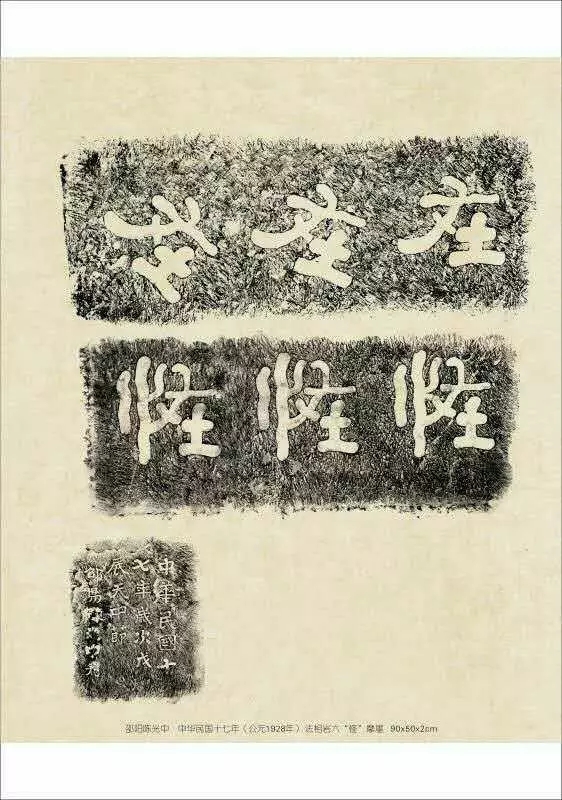 圣圣圣
怪怪怪
中華民國十
七年歲次戊
辰天中節
邵陽陳光中
邵阳陈光中 中华民国十七年（公元1928年）法相岩六“怪”摩崖 90x50x2cm